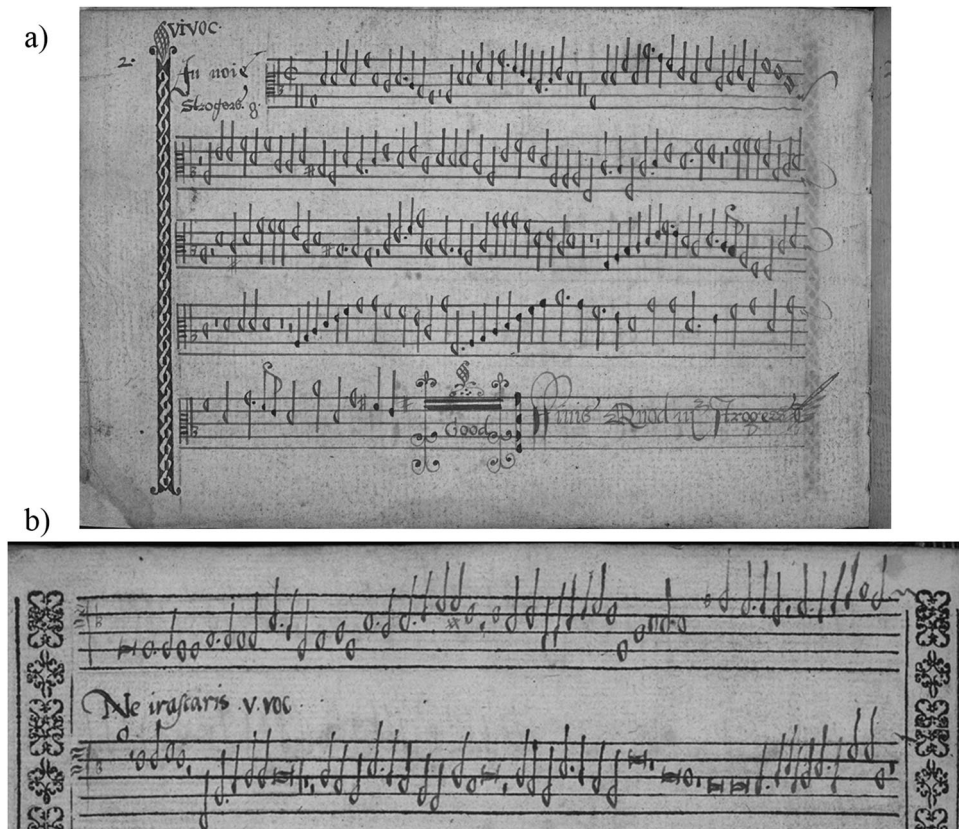 a)
VI VOC.
2.
In noiē
Strogers. g.
Good
Finis Quod mr Strogers
b)
Ne irascaris . v. voc